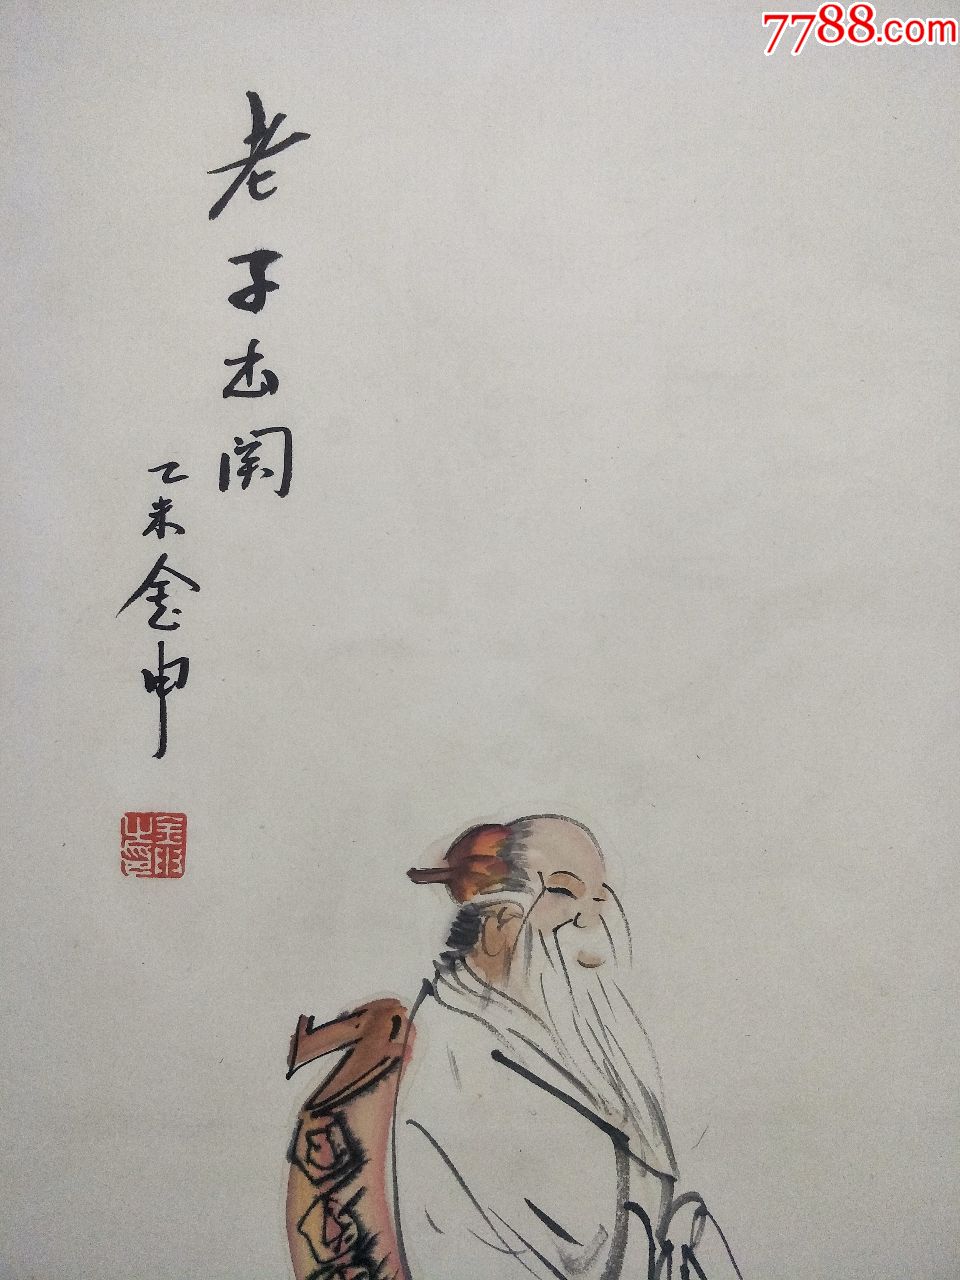 7788.com
老子出关
乙未金申